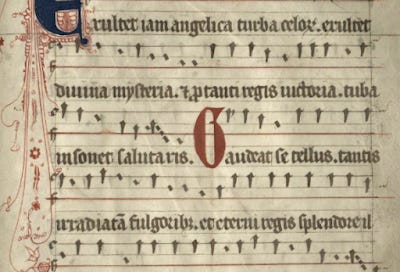 Exultet iam angelica turba celoꝝ. exultet
diuina mysteria. & ꝓ tanti regis uictoria. tuba
insonet salutaris. Gaudeat se tellus. tantis
irradiatā fulgoribꝫ. et eterni regis splendore il